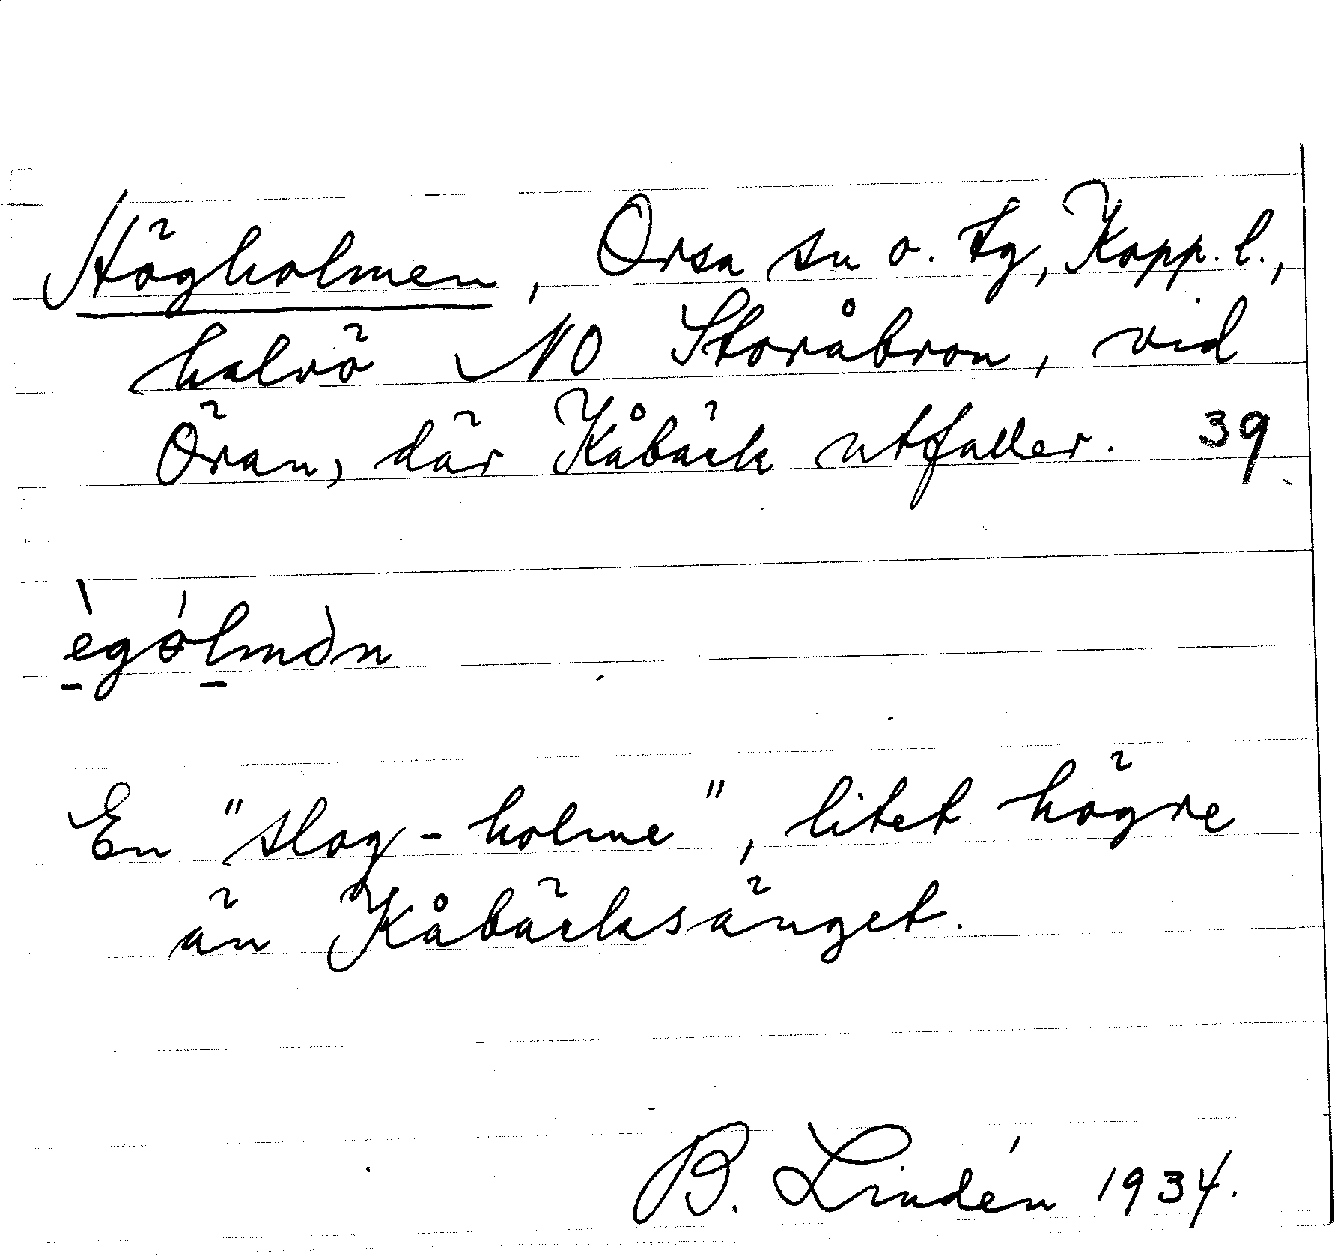 Högholmen, Orsa sn o. tg, Kopp. l.,
halvö NO Storåbron, vid
Öran, där Kåbäck utfaller. 39
ègólmòn
En "slog-holme", litet högre
än Kåbäcksänget.
B. Lindén 1934.